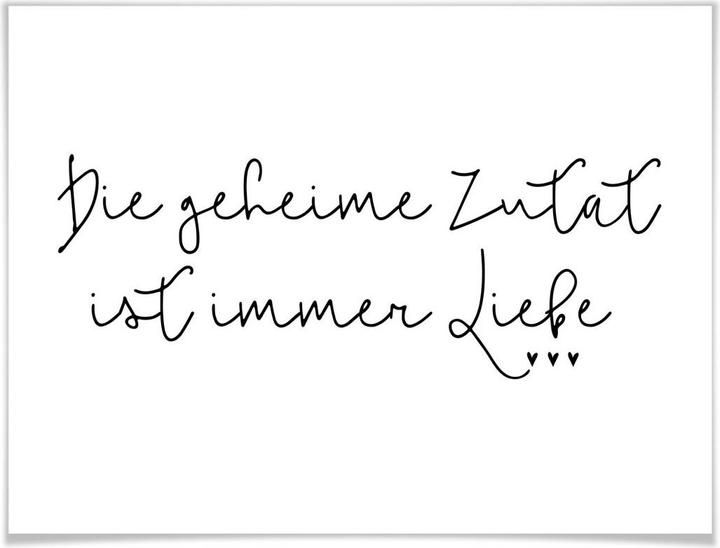 Die geheime Zutat
ist immer Liebe
♥♥♥